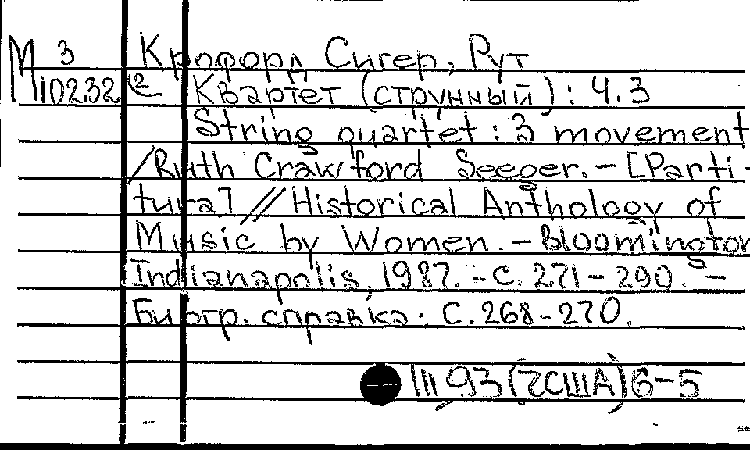 М 3 Крофорд Сигер, Рут
10232 2 Квартет (струнный): Ч.3
String quartet: 3 movement
/Ruth Crawford Seeger.-[Parti-
tura] // Historical Anthology of
Music by Women.-Bloomington
Indianapolis, 1987.-С. 271-290.-
Биогр. справка: С. 268-270.
III 93 (7США) 6-5